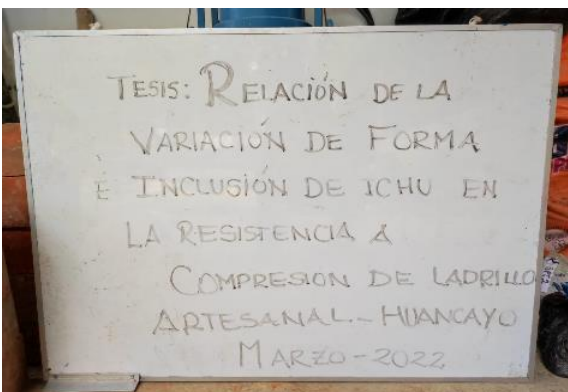 TESIS: RELACIÓN DE LA
VARIACIÓN DE FORMA
E INCLUSIÓN DE ICHU EN
LA RESISTENCIA A
COMPRESION DE LADRILLO
ARTESANAL - HUANCAYO
MARZO - 2022